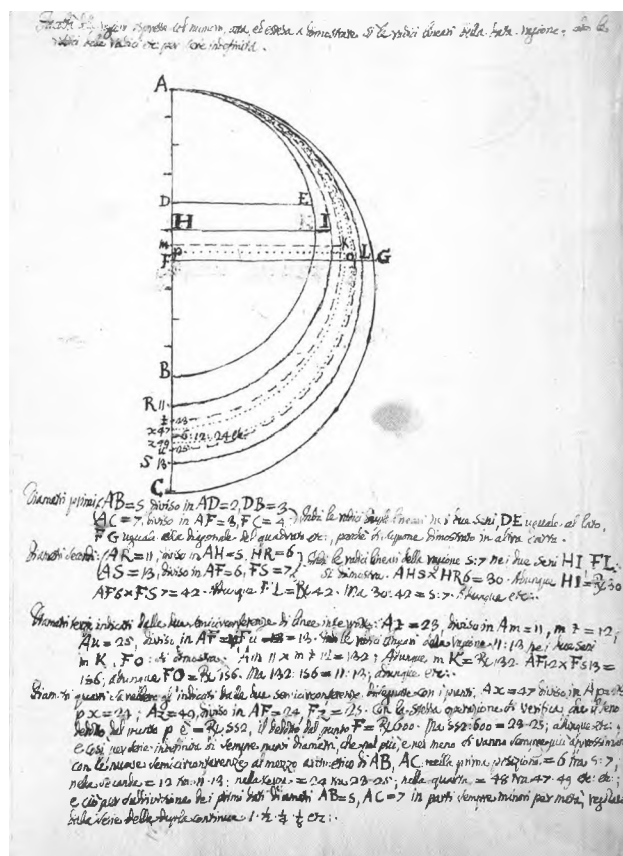 ragion espressa coi numeri, ed estesa a dimostrare le radici lineari della data ragione
radici delle radici etc. per serie indefinita.
A
D E
H I
m K
P o L G
F
B
R 11
t 23
x 47
6:12:24 etc.
z 49
u 25
S 13
C
Diametri primi: AB=5, diviso in AD=2, DB=3
AC=7, diviso in AF=3, FC=4 le radici lineari ne i due seni, DE uguale al lato,
FG uguale alla diagonale del quadrato etc., perché si suppone dimostrato in altra carta.
Diametri secondi: AR=11, diviso in AH=5, HR=6 le radici lineari della ragione 5:7 nei due seni HI FL:
AS=13, diviso in AF=6, FS=7 si dimostra. AH5 X HR6=30. Adunque HI=R 30
AF6 X FS7=42. Adunque FL=R 42. Ma 30:42=5:7. Adunque etc:
Diametri terzi indicati dalle due semicirconferenze di linee interrotte: At=23, diviso in Am=11, mt=12,
Au=25, diviso in AF Fu =13. le radici lineari della ragione 11:13 ne i due seni
mK, FO: si dimostra. Am 11 X mt 12=132; Adunque mK=R 132. AF12 X FS13=
156, adunque FO=R 156. Ma 132:156=11:13; adunque etc:
Diametri quarti indicati dalle due semicirconferenze con i punti: Ax=47 diviso in Ap=23
px=24; Az=49, diviso in AF=24, Fz=25. Con la stessa operazione si verifica, che il seno
del punto p è=R 552, il del punto F=R 600. Ma 552:600=23:25; adunque etc:
e così per serie indefinita di sempre nuovi diametri, che nel più, e nel meno si vanno sempre più
con le nuove semicirconferenze al mezzo aritmetico di AB, AC nella prima posizione=6 tra 5:7,
nella seconda=12 tra 11:13; nella terza=24 tra 23:25; nella quarta=48 tra 47:49 etc. etc:;
e ciò per suddivisione dei primi dati diametri AB=5, AC=7 in parti sempre minori per metà,
dalla serie della dupla continua 1. ½. ¼. ⅛ etc:.